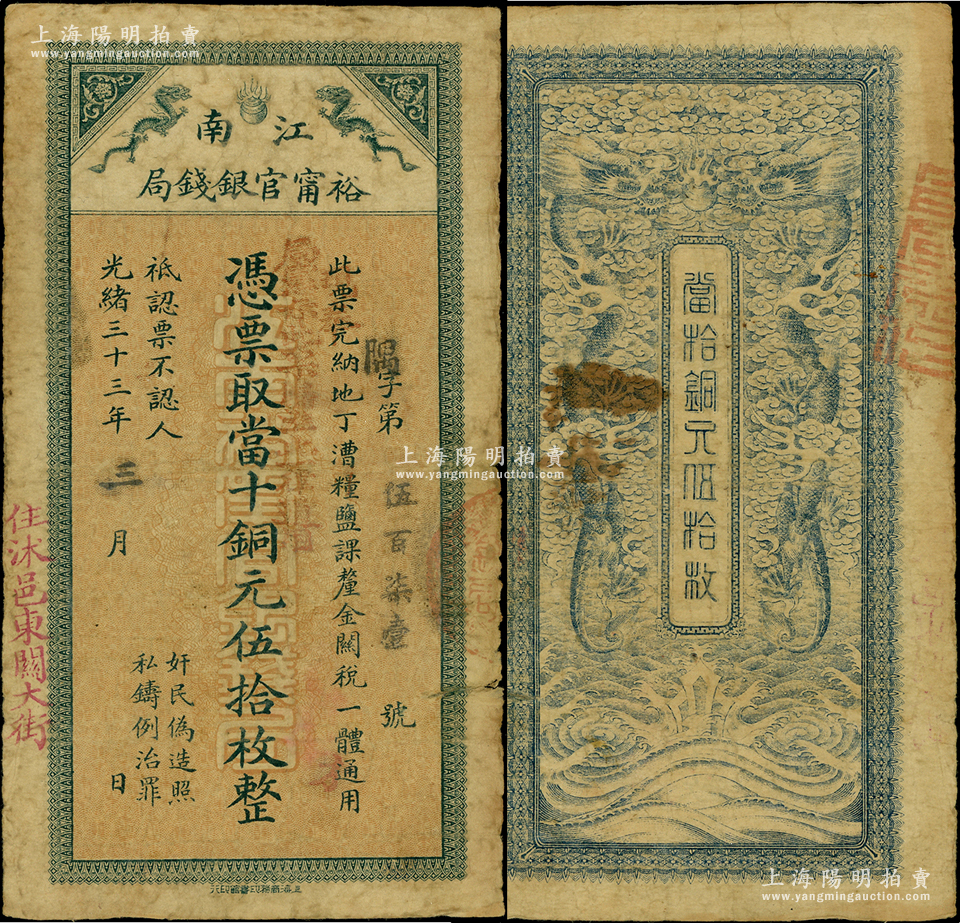 上海陽明拍賣
www.yangmingauction.com
江南
裕甯官銀錢局
字第伍百柒壹號
此票完納地丁漕糧鹽課釐金關稅一體通用
憑票取當十銅元伍拾枚整
祗認票不認人
光緒三十三年三月日
奸民偽造照
私鑄例治罪
住沐邑東關大街
當拾銅元伍拾枚
上海陽明拍賣
www.yangmingauction.com
上海陽明拍賣
www.yangmingauction.com